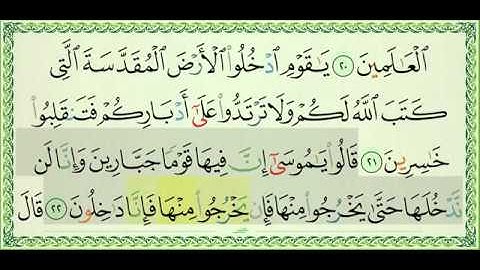 ٱلْعَٰلَمِينَ ٢٠ يَٰقَوْمِ ٱدْخُلُوا۟ ٱلْأَرْضَ ٱلْمُقَدَّسَةَ ٱلَّتِى
كَتَبَ ٱللَّهُ لَكُمْ وَلَا تَرْتَدُّوا۟ عَلَىٰٓ أَدْبَارِكُمْ فَتَنقَلِبُوا۟
خَٰسِرِينَ ٢١ قَالُوا۟ يَٰمُوسَىٰٓ إِنَّ فِيهَا قَوْمًا جَبَّارِينَ وَإِنَّا لَن
نَّدْخُلَهَا حَتَّىٰ يَخْرُجُوا۟ مِنْهَا فَإِن يَخْرُجُوا۟ مِنْهَا فَإِنَّا دَٰخِلُونَ ٢٢ قَالَ